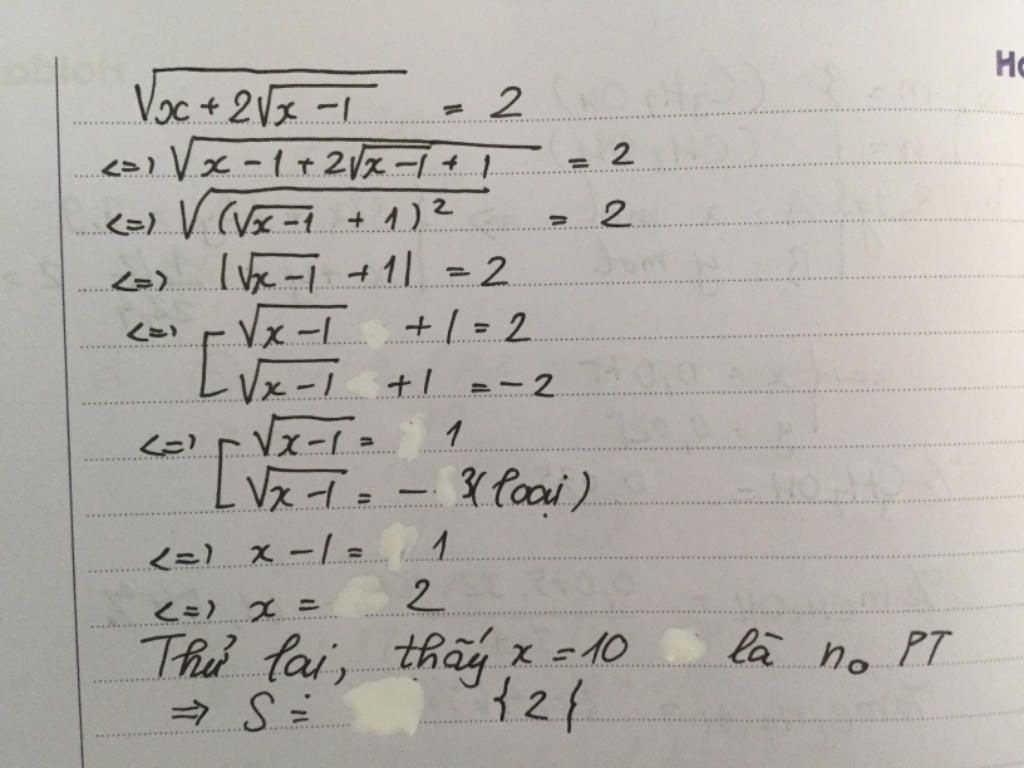 Ho
√(x + 2√(x - 1)) = 2
<=> √(x - 1 + 2√(x - 1) + 1) = 2
<=> √((√(x - 1) + 1)²) = 2
<=> |√(x - 1) + 1| = 2
<=> [ √(x - 1) + 1 = 2
√(x - 1) + 1 = -2
<=> [ √(x - 1) = 1
√(x - 1) = - 3 (loại)
<=> x - 1 = 1
<=> x = 2
Thử lại, thấy x = 10 là no PT
=> S = {2{